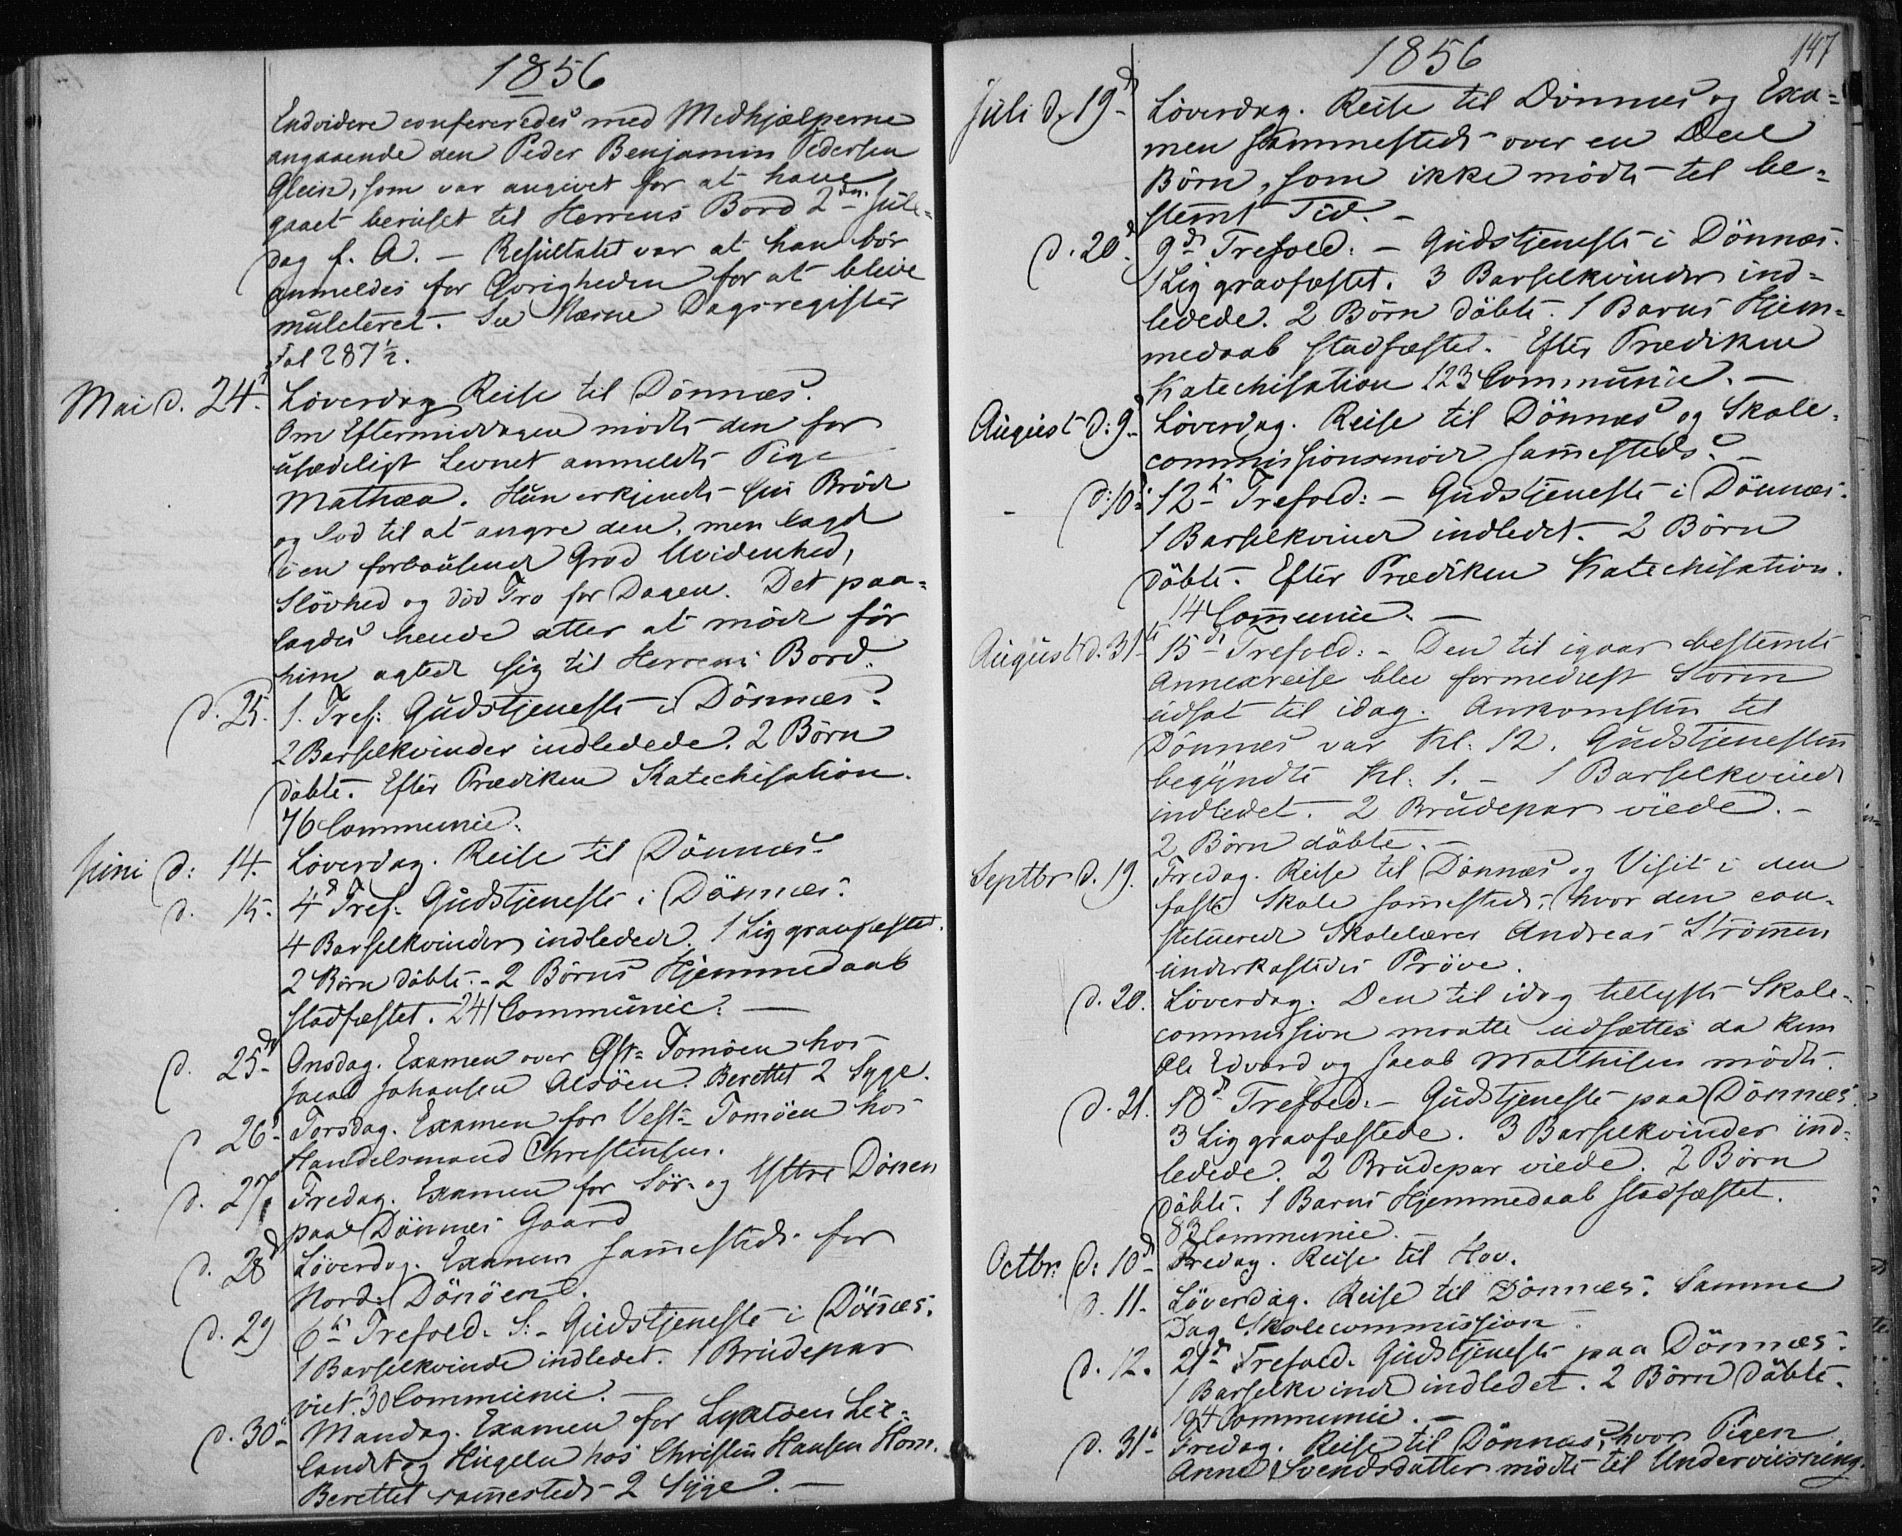 1856
Endvidere confereredes med Medhjælperne
angaaende den Peder Benjamin Pedersen
Glein, som var angivet for at have
gaaet beruset til Herrens Bord 2den Jule-
dag f. A. – Resultatet var at han bör
anmeldes for Øvrigheden for at blive
mulcteret. – See Dagsregister
Fol 287½.
Mai d. 24. Löverdag Reise til Dönnæs.
Om Eftermiddagen mödte den for
usædeligt Levnet anmeldte Pige
Mathea. Hun erkjendte sin Bröde
og lod til at angre den, men lagde
i en forbausende Grad Uvidenhed,
Slövhed og död Tro for Dagen. Det paa-
lagdes hende atter at möde för
hun agtede sig til Herrens Bord.
d. 25. 1. Tref: Gudstjeneste i Dönnæs.
2 Barselkvinder indledede. 2 Börn
döbte. Efter Prædiken Katechisation.
76 Communic.
Juni d: 14. Löverdag. Reise til Dönnæs.
d. 15. 4d Tref: Gudstjeneste i Dönnæs.
4 Barselkvinder indledede. 1 Lig gravfæstet.
2 Börn döbte. – 2 Börns Hjemmedaab
stadfæstet. 241 Communic. –
d. 25d Onsdag. Examen over Öst- Tomöen hos
Jacob Johansen Alsöen. Berettet 2 Syge.
d. 26. Torsdag. Examen for Vest- Tomöen hos
Handelsmand Christensen.
d. 27. Fredag. Examen for Sör- og Yttre Dönen
paa Dönnes Gaard
d. 28d Löverdag. Examen sammesteds for
Nord- Dönöen.
d. 29 6te Trefold. S. – Gudstjeneste i Dönnæs.
1 Barselkvinde indledet. 1 Brudepar
viet. 30 Communic. –
d. 30. Mandag. Examen for
og Hugeln hos Christen Hansen Hom.
Berettet sammesteds 2 Syge. –
1856
147
Juli d. 19d Löverdag. Reise til Dönnæs og Exa-
men sammesteds over en Deel
Börn, som ikke mödte til be-
stemt Tid. –
d. 20d 9de Trefold. – Gudstjeneste i Dönnæs.
1 Lig gravfæstet. 3 Barselkvinder ind-
ledede. 2 Börn döbte. 1 Barns Hjem-
medaab stadfæstet. Efter Prædiken
Katechisation 123 Communic. –
August d: 9. Löverdag. Reise til Dönnæs og Skole-
commissionsmöde sammesteds. –
d: 10. 12te Trefold: – Gudstjeneste i Dönnæs.
1 Barselkvinde indledet. – 2 Börn
döbte. Efter Prædiken Katechisation.
14 Communic. –
August d. 31te 15de Trefold: – Den til igaar bestemte
Annexreise blev formedelst Storm
udsat til idag. Ankomsten til
Dönnæs var Kl: 12. Gudstjenesten
begyndte Kl: 1. – 1 Barselkvinde
indledet. 2 Brudepar viede. –
2 Börn döbte. –
Septbr d. 19. Fredag. Reise til Dönnæs og Visit i den
faste Skole sammesteds, hvor den con-
stituerede Skolelærer Andreas Strömmen
underkastedes Pröve.
d. 20. Löverdag. Den til idag tillyste Skole-
commission maatte udsættes da kun
Ole Edvard og Jacob Matthisen mödte.
d. 21. 18de Trefold. – Gudstjeneste paa Dönnæs.
3 Lig gravfæstede. 3 Barselkvinder ind-
ledede. 2 Brudepar viede. 2 Börn
döbte. 1 Barns Hjemmedaab stadfæstet.
83 Communic. –
Octbr: d: 10d Fredag. Reise til Hov.
d. 11. Löverdag. Reise til Dönnæs. Samme
Dag Skolecommission.
d. 12. 21de Trefold. Gudstjeneste paa Dönnæs.
1 Barselkvinde indledet. 2 Börn döbte.
194 Communic. –
d. 31. Fredag. Reise til Dönnæs, hvor Pigen
Anne Svendsdatter mödte til Underviisning.